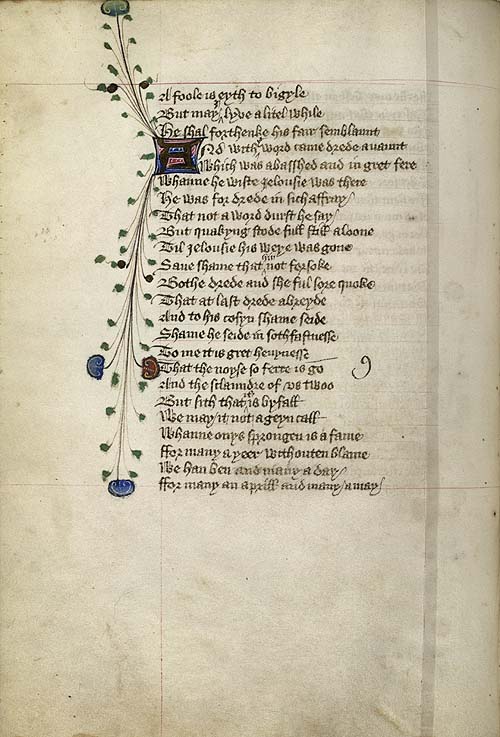 A foole is eyth to bigyle
But may I lyve a litel while
He shal forthenke his fair semblaunt
And with yt word came drede avaunt
Which was abasshed and in gret fere
Whanne he wiste Jelousie was there
He was for drede in sich affray /
That not a word durst he say /
But quakyng stode full still aloone
Til Jelousie his weye was gone
Saue shame that him not forsoke
Bothe drede and she ful sore quoke
That at last drede abreyde
And to his cosyn shame seide
Shame he seide in sothfastnesse
To me it is gret heuynesse
That the noyse so ferre is go
And the sclaundre of vs twoo
But sith that it is byfall
We may it not ageyn call
Whanne onys sprongen is a fame
ffor many a yeer withouten blame
We han ben and many a day /
ffor many an aprill and many a may /